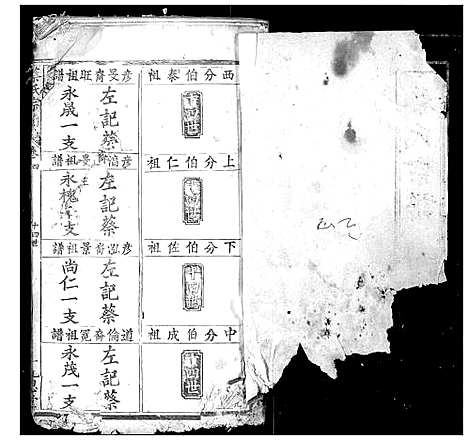 西分伯泰祖
十四世
上分伯仁祖
十四世
下分伯佐祖
十四世
中分伯成祖
十四世
彥旻齋旺祖譜
左記蔡
永晟一支
彥滔齋旻祖譜
左記蔡
永槐等支
彥泓齋景祖譜
左記蔡
尚仁一支
道倫齋冕祖譜
左記蔡
永茂一支
卷四
十四世